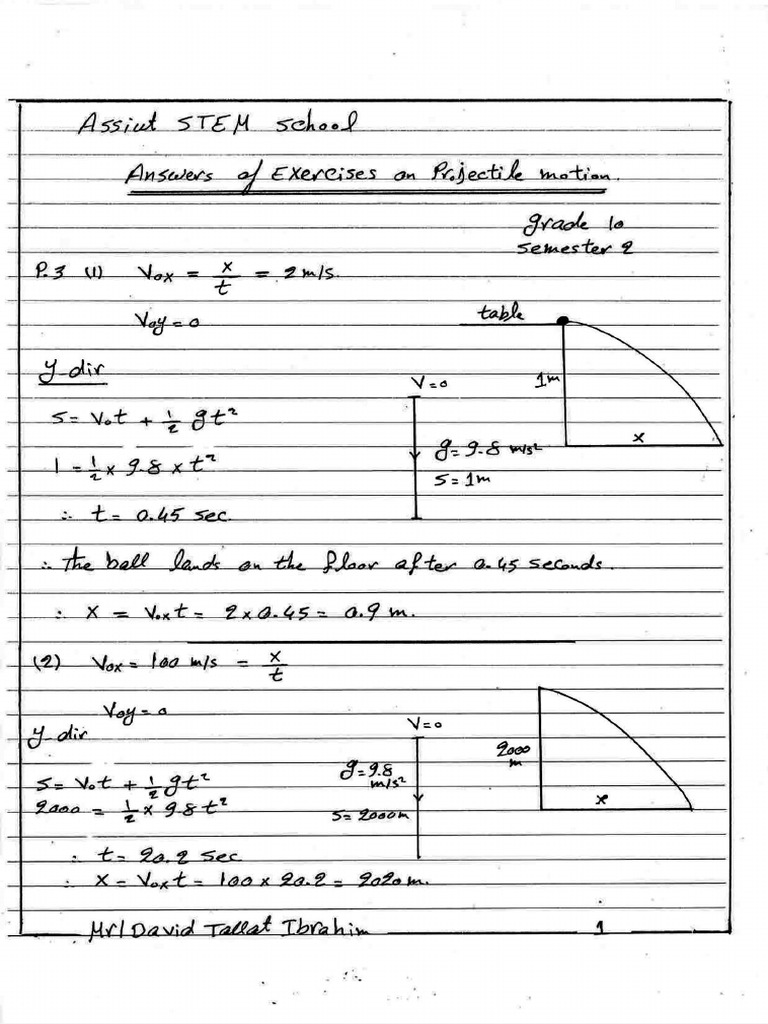 Assiut STEM school
Answers of Exercises on Projectile motion.
grade 10
semester 2
P.3 (1) Vox = x/t = 2 m/s.
Voy = 0
table
y-dir
V=0
1m
S = V₀t + ½ gt²
g=9.8 m/s²
x
1 = ½ × 9.8 × t²
S=1m
∴ t = 0.45 sec.
∴ the ball lands on the floor after 0.45 seconds.
∴ X = Voxt = 2 × 0.45 = 0.9 m.
(2) Vox = 100 m/s = x/t
Voy = 0
V=0
y-dir
2000 m
g=9.8 m/s²
S = V₀t + ½ gt²
x
2000 = ½ × 9.8 t²
S=2000m
∴ t = 20.2 sec
∴ X = Voxt = 100 × 20.2 = 2020 m.
Mr/David Tallat Ibrahim 1